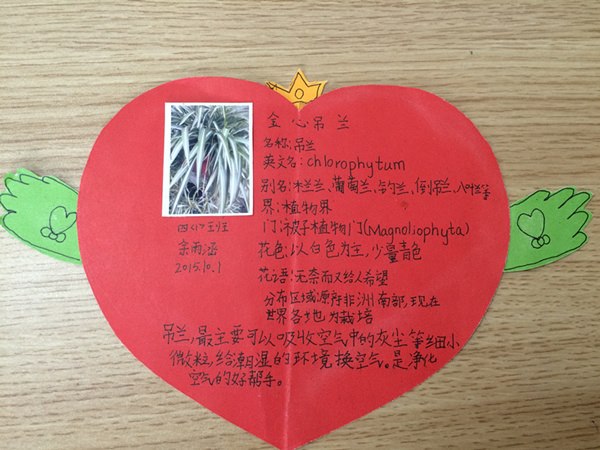 金心吊兰
名称:吊兰
英文名:chlorophytum
别名:木兰兰、葡萄兰、钓兰、倒吊兰、八叶兰等
界:植物界
门:被子植物门(Magnoliophyta)
花色:以白色为主,少量青色
花语:无奈而又给人希望
分布区域:源于非洲南部,现在
世界各地为栽培
四(2)班
余雨涵
2015.10.1
吊兰,最主要可以吸收空气中的灰尘等细小
微粒,给潮湿的环境换空气。是净化
空气的好帮手。